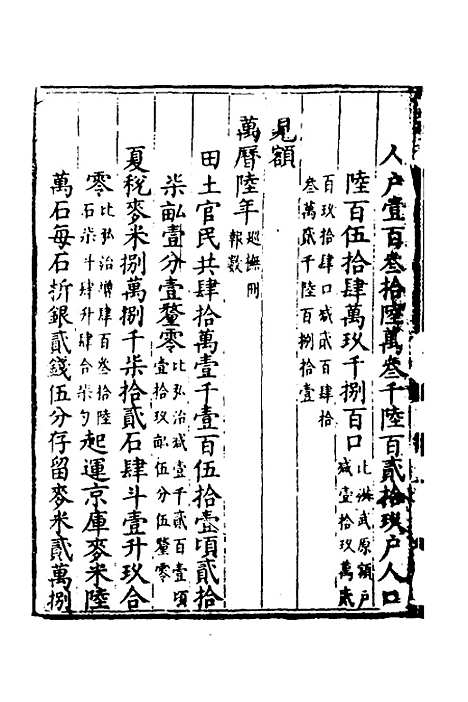 人户壹百叁拾陸萬叁千陸百貳拾玖户人口
陸百伍拾肆萬玖千捌百口比洪武原額户
減壹拾玖萬柒
百玖拾肆口減貳百肆拾
叁萬貳千陸百捌拾壹
見額
萬曆陸年巡撫冊
報數
田土官民共肆拾萬壹千壹百伍拾壹頃貳拾
柒畝壹分壹釐零比弘治減壹千貳百壹頃
壹拾玖畝伍分伍釐零
夏稅麥米捌萬捌千柒拾貳石肆斗壹升玖合
零比弘治增肆百叁拾陸
石柒斗肆升肆合柒勺起運京庫麥米陸
萬石每石折銀貳錢伍分存留麥米貳萬捌